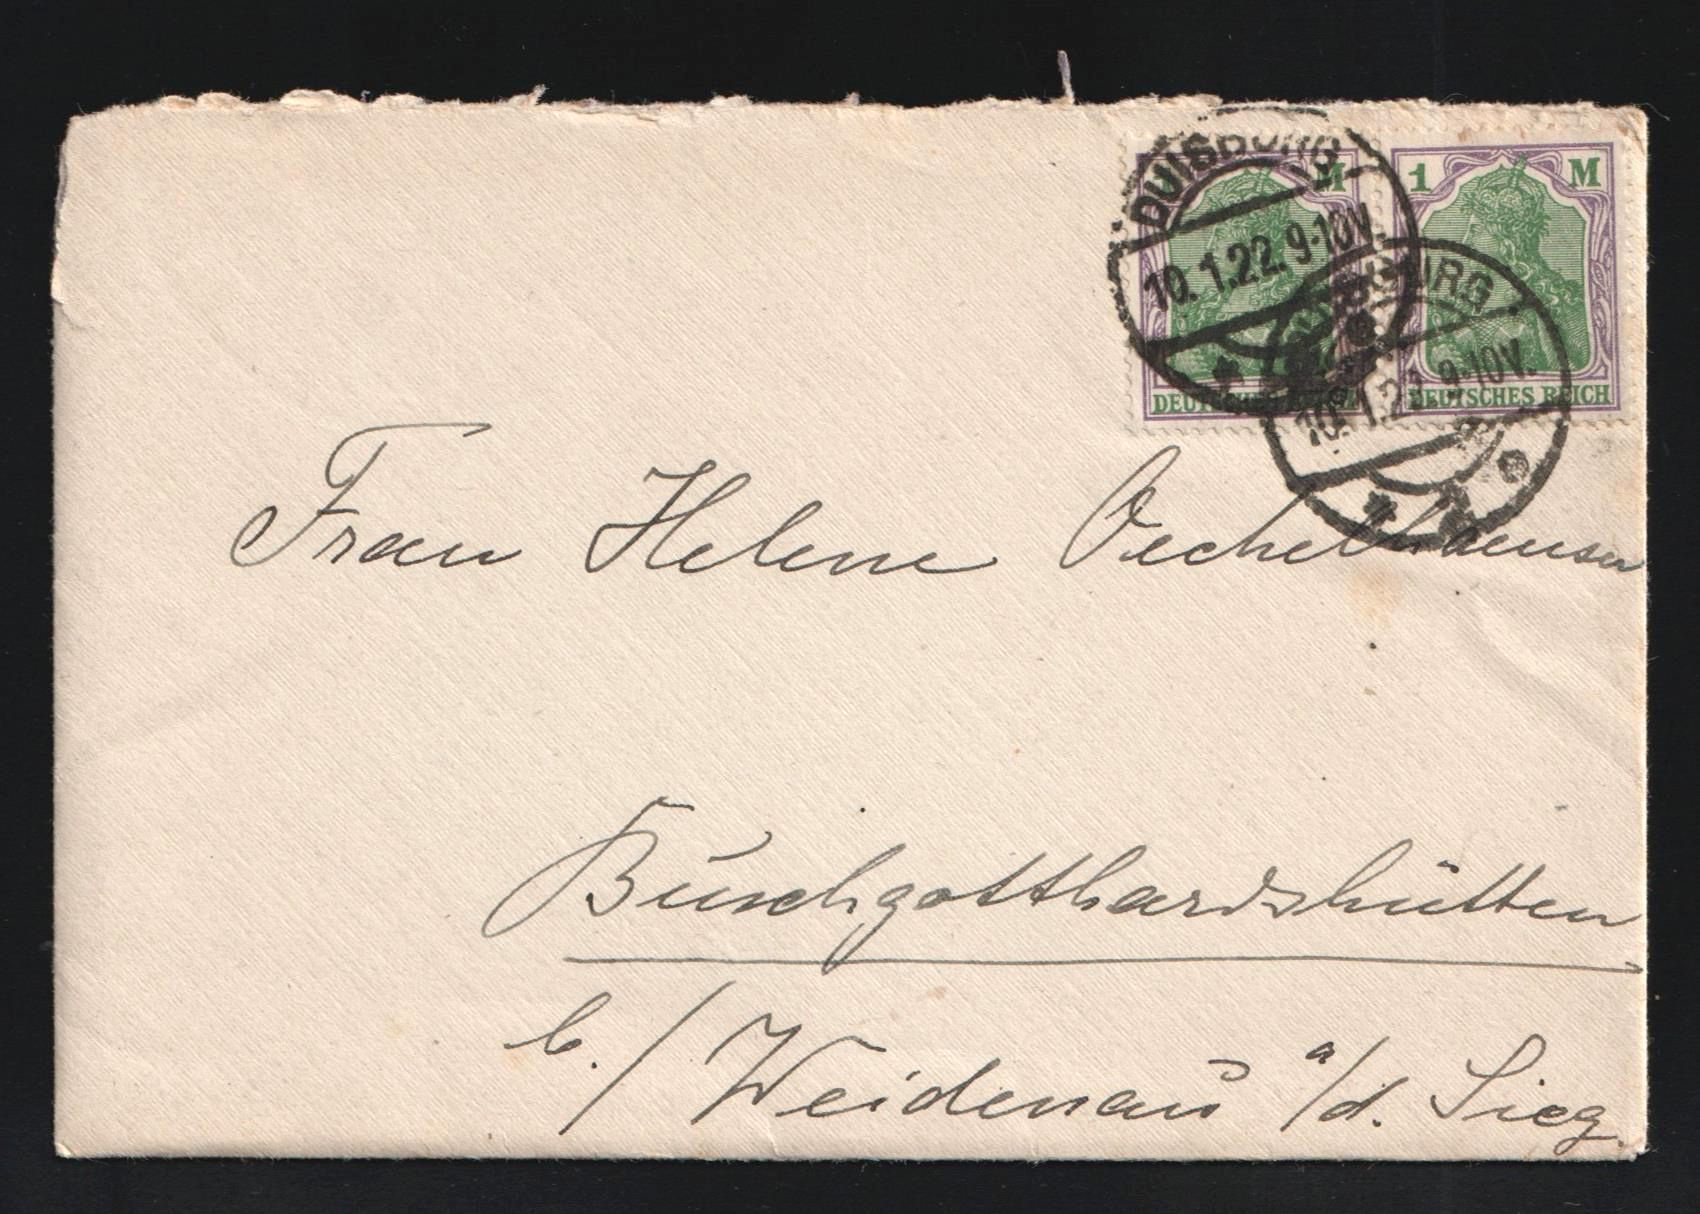 DUISBURG
10. 1.22. 9-10V.
M
DEUTSCHES
1 M
DEUTSCHES REICH
10. 1.22. 9-10V.
Frau Helene Oechelhaeuser
Buschgotthardshütten
b./Weidenau a/d. Sieg.